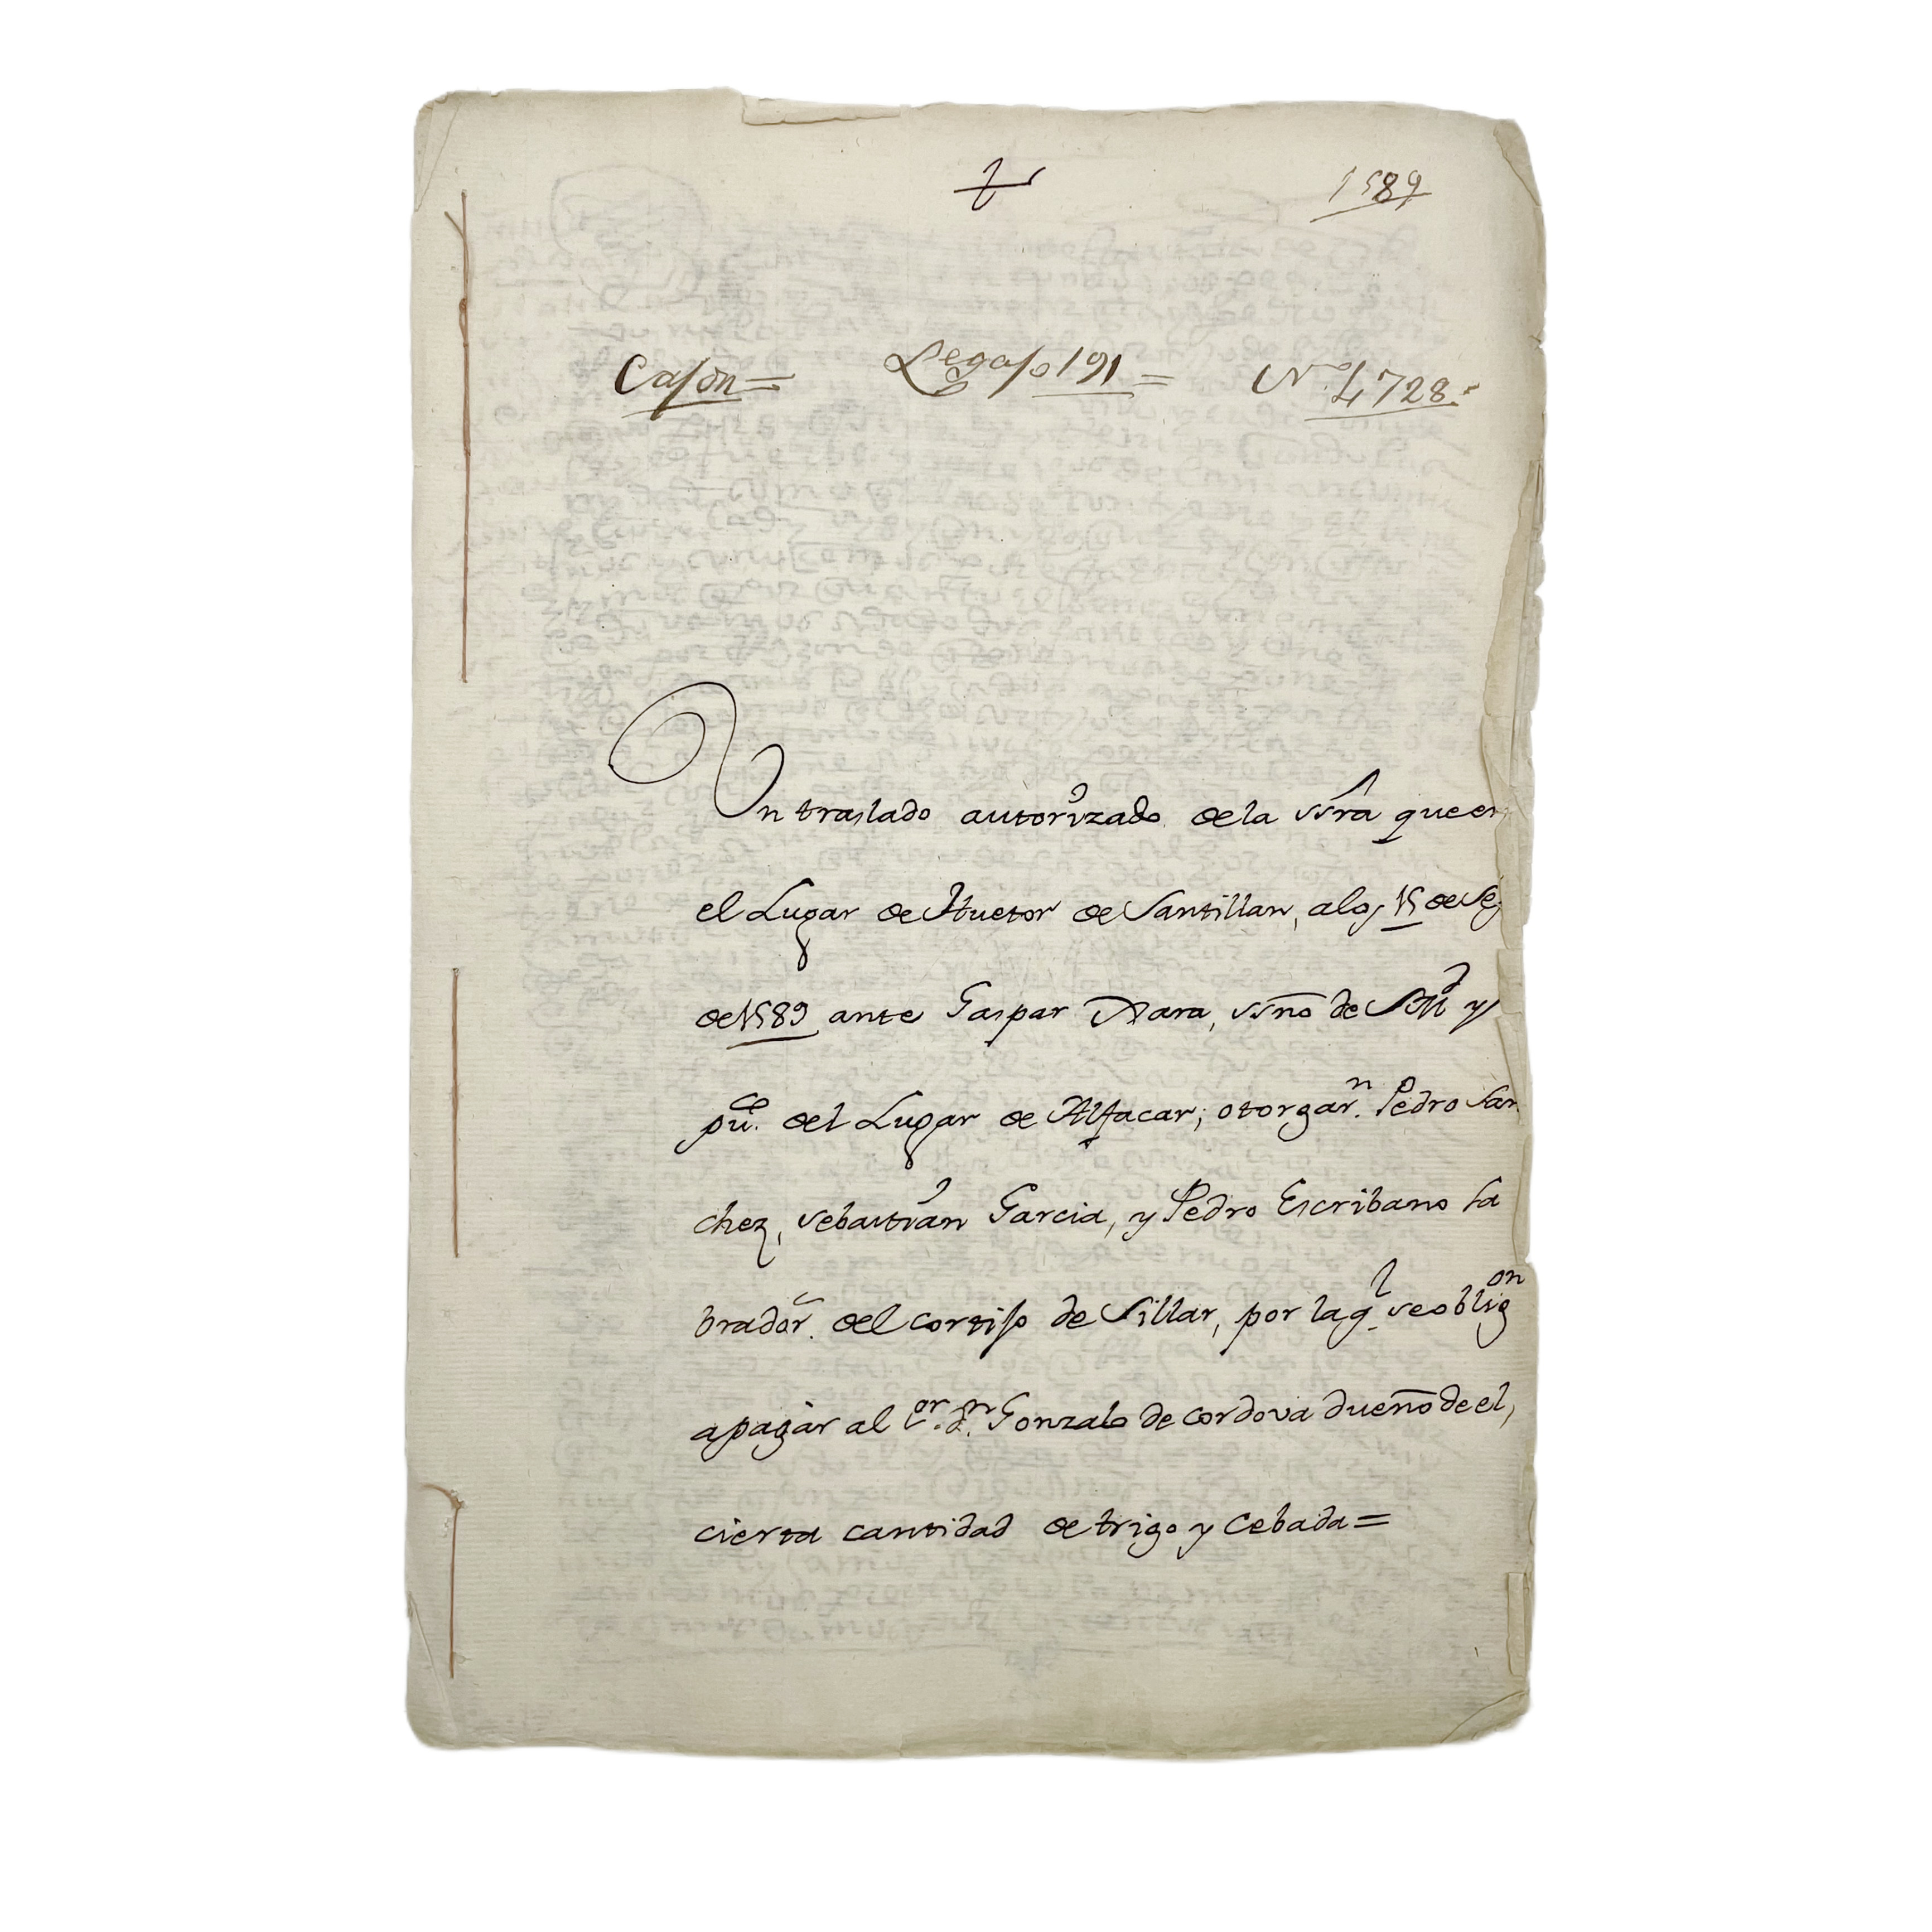 1589
Cajon= Legajo 191= N.º 4728.
Un traslado autorizado de la ssrâ que en
el Lugar de Huetor de Santillan, a los 15 de Se
de 1589 ante Gaspar Xara, ssño de S M^d y
pu^co. del Lugar de Alfacar; otorgar^n. Pedro San
chez, sebastian Garcia, y Pedro Escribano la
brador^s. del cortijo de Sillar, por la q^l. se oblig^on
a pagar al S^or. d^n. Gonzalo de cordova dueño de el,
cierta cantidad de trigo y cebada=